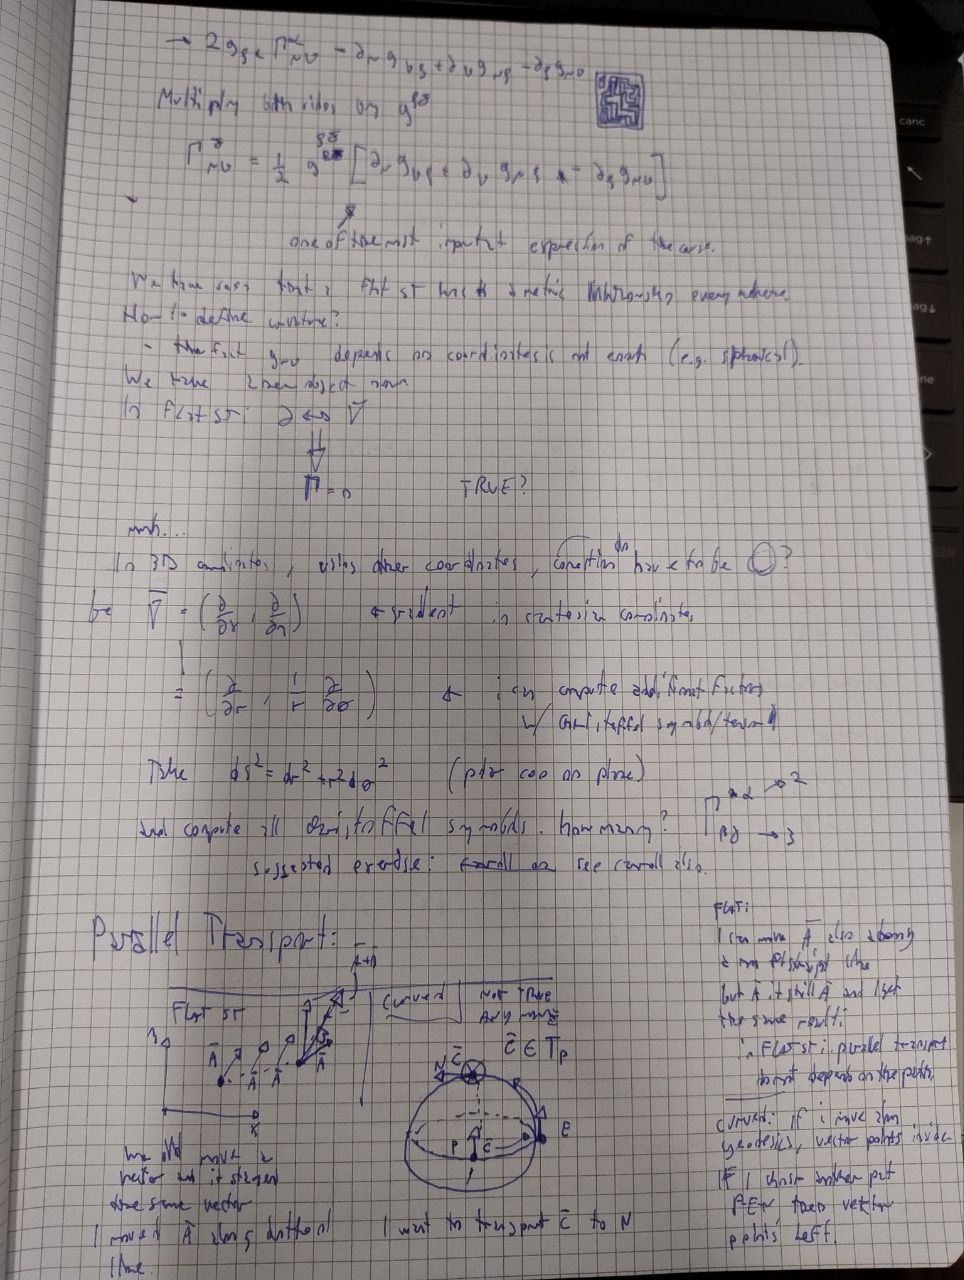 → 2g_ρα Γ^α_μν = ∂_μ g_νρ + ∂_ν g_μρ - ∂_ρ g_μν
Multiply both sides by g^ρσ
Γ^σ_μν = 1/2 g^ρσ [∂_μ g_νρ + ∂_ν g_μρ - ∂_ρ g_μν]
one of the most important expression of the course.
We have seen that a flat ST has a metric Minkowski everywhere.
How to define curvature?
- the fact g_μν depends on coordinates is not enough (e.g. spherical).
We have new object now
In flat ST: ∂ ↔ ∇
⇓
Γ = 0 TRUE?
mmh....
In 3D, using other coordinates, connection have to be 0?
∇ = (∂/∂x, ∂/∂y) ← gradient in cartesian coordinates
= (∂/∂r, 1/r ∂/∂θ) ← i can compute additional factors
w/ christoffel symbol/term
Take ds² = dr² + r² dθ² (polar coo on plane)
and compute all christoffel symbols. how many? Γ^α_βγ → 2
→ 3
suggested exercise: see carroll also.
Parallel Transport:
A+B
Flat ST
Curved
Not true
any more
C ∈ T_P
A A A A
B
y
x
N C
P C E
We move a
vector and it stays
the same vector
I moved A along dotted
line.
I want to transport C to N
FLAT:
I can move A also along
a non straight line
but A is still A and I get
the same result:
in FLAT ST: parallel transport
doesn't depend on the path.
curved: if i move along
geodesics, vector points inside.
If I choose another path
P-E-N then vector
points left.
canc